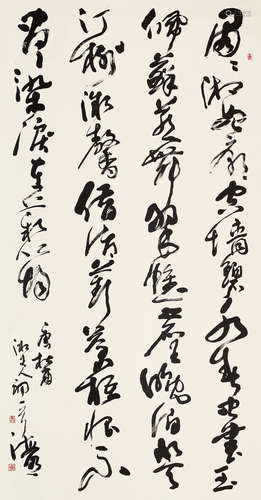 肅肅湘妃廟空墙碧水春虫書玉
佩蘚燕舞翠帷塵晚泊登
汀樹微馨借渚蘋蒼梧恨不
盡染淚在丛筠
唐杜甫
湘夫人祠